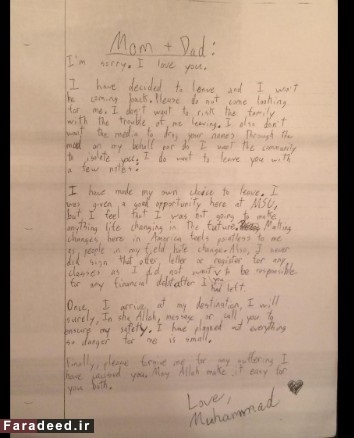 Mom + Dad:
I'm sorry. I love you.
I have decided to leave and I won't
be coming back. Please do not come looking
for me. I don't want to risk the family
with the trouble of me leaving. I also don't
want the media to drag your names through the
mud on my behalf nor do I want the community
to isolate you. I do want to leave you with
a few notes.
I have made my own choice to leave. I
was given a good opportunity here at MSU,
but I feel that I was not going to make
anything life changing in the future. Making
changes here in America feels pointless to me
as people in my field hate change. Also, I never
did sign that offer letter or register for any
classes as I did not want to be responsible
for any financial debt after I had left.
Once I arrive at my destination, I will
surely, In sha Allah, message or call you to
ensure my safety. I have planned out everything
so danger for me is small.
Finally, please forgive me for any suffering I
have caused you. May Allah make it easy for
you both.
Love,
Muhammad
Faradeed.ir
Faradeed.ir